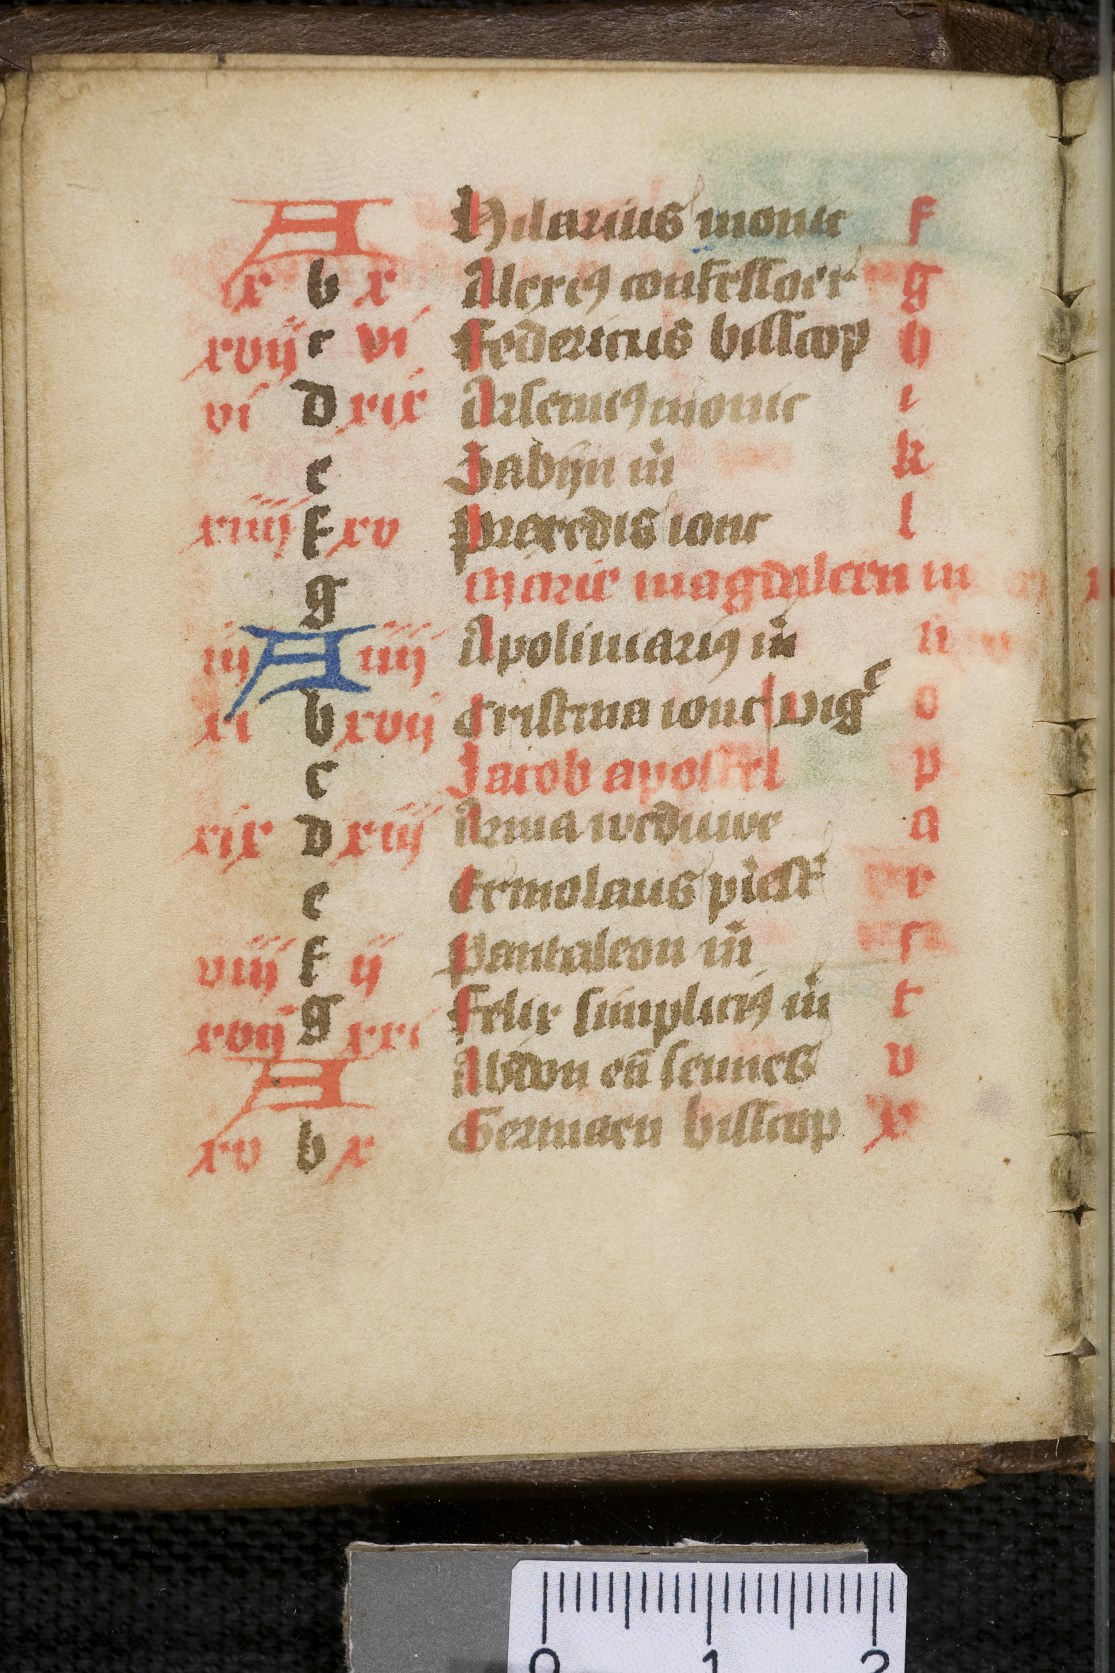 A Hilarius monic f
ix b x Alexiꝰ confessoer g
xvij c vi Federicus bisscop h
vi d xix Arseniꝰ monic i
e Sabijn m̄
xiiij f xv Praxedis ionc l
g Marie magdaleen
iij A iiij Apolinariꝰ m̄ n
xi b xvij Cristina ionc vig͛ o
c Jacob apostel p
xix d xiij Anna weduwe q
e Ermolaus pͥest͛ r
viij f ij Pantaleon m̄ s
xvij g xxi Felix simpliciꝰ m̄ t
A Abdon en̄ sennes v
xv b x Germaen bisscop x
0 1 2